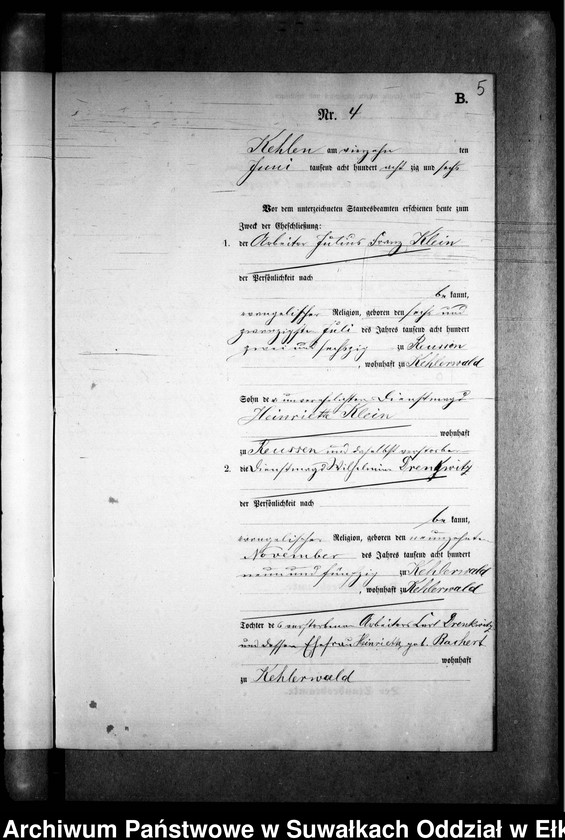 5
B.
Nr. 4
Kehlen am vierzehn ten
Juni tausend acht hundert acht zig und sechs
Vor dem unterzeichneten Standesbeamten erschienen heute zum
Zweck der Eheschließung:
1. der Arbeiter Julius Franz Klein
der Persönlichkeit nach
be kannt,
evangelischer Religion, geboren den sechs und
zwanzigsten Juli des Jahres tausend acht hundert
zwei und sechszig zu Reussen
, wohnhaft zu Kehlerwald
Sohn der unverehelichten Dienstmagd
Heinriette Klein
wohnhaft
zu Reussen und daselbst verstorben
2. die Dienstmagd Wilhelmine Drenkwitz
der Persönlichkeit nach
be kannt,
evangelischer Religion, geboren den neunzehnten
November des Jahres tausend acht hundert
neun und fünfzig zu Kehlerwald
, wohnhaft zu Kehlerwald
Tochter des verstorbenen Arbeiters Carl Drenkwitz
und dessen Ehefrau Heinriette geb. Bachert
wohnhaft
zu Kehlerwald
Archiwum Państwowe w Suwałkach Oddział w Ełk